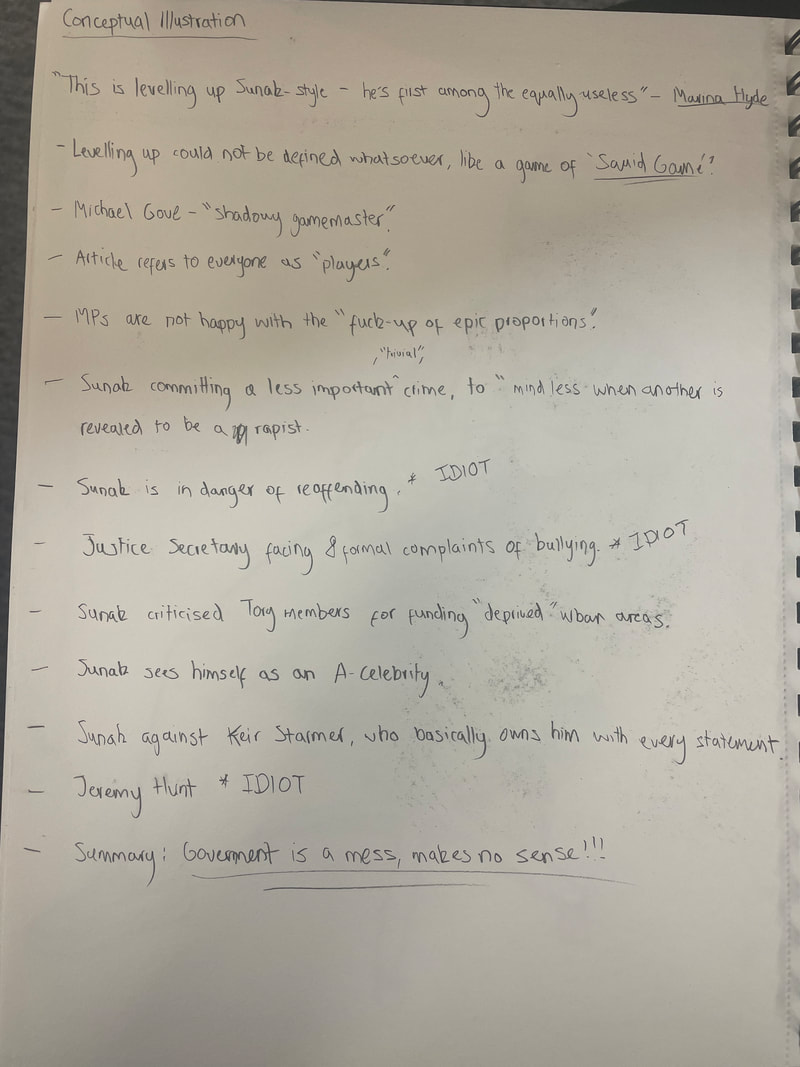 Conceptual Illustration
"This is levelling up Sunak-style - he's first among the equally useless" - Marina Hyde
- Levelling up could not be defined whatsoever, like a game of 'Squid Game'!
- Michael Gove - "shadowy gamemaster".
- Article refers to everyone as "players".
- MPs are not happy with the "fuck-up of epic proportions".
, "trivial",
- Sunak committing a less important ^ crime, to "mind less when another is
revealed to be a rapist.
- Sunak is in danger of reoffending. * IDIOT
- Justice Secretary facing 8 formal complaints of bullying. * IDIOT
- Sunak criticised Tory members for funding "deprived" urban areas.
- Sunak sees himself as an A-Celebrity.
- Sunak against Keir Starmer, who basically owns him with every statement.
- Jeremy Hunt * IDIOT
- Summary: Goverment is a mess, makes no sense!!!